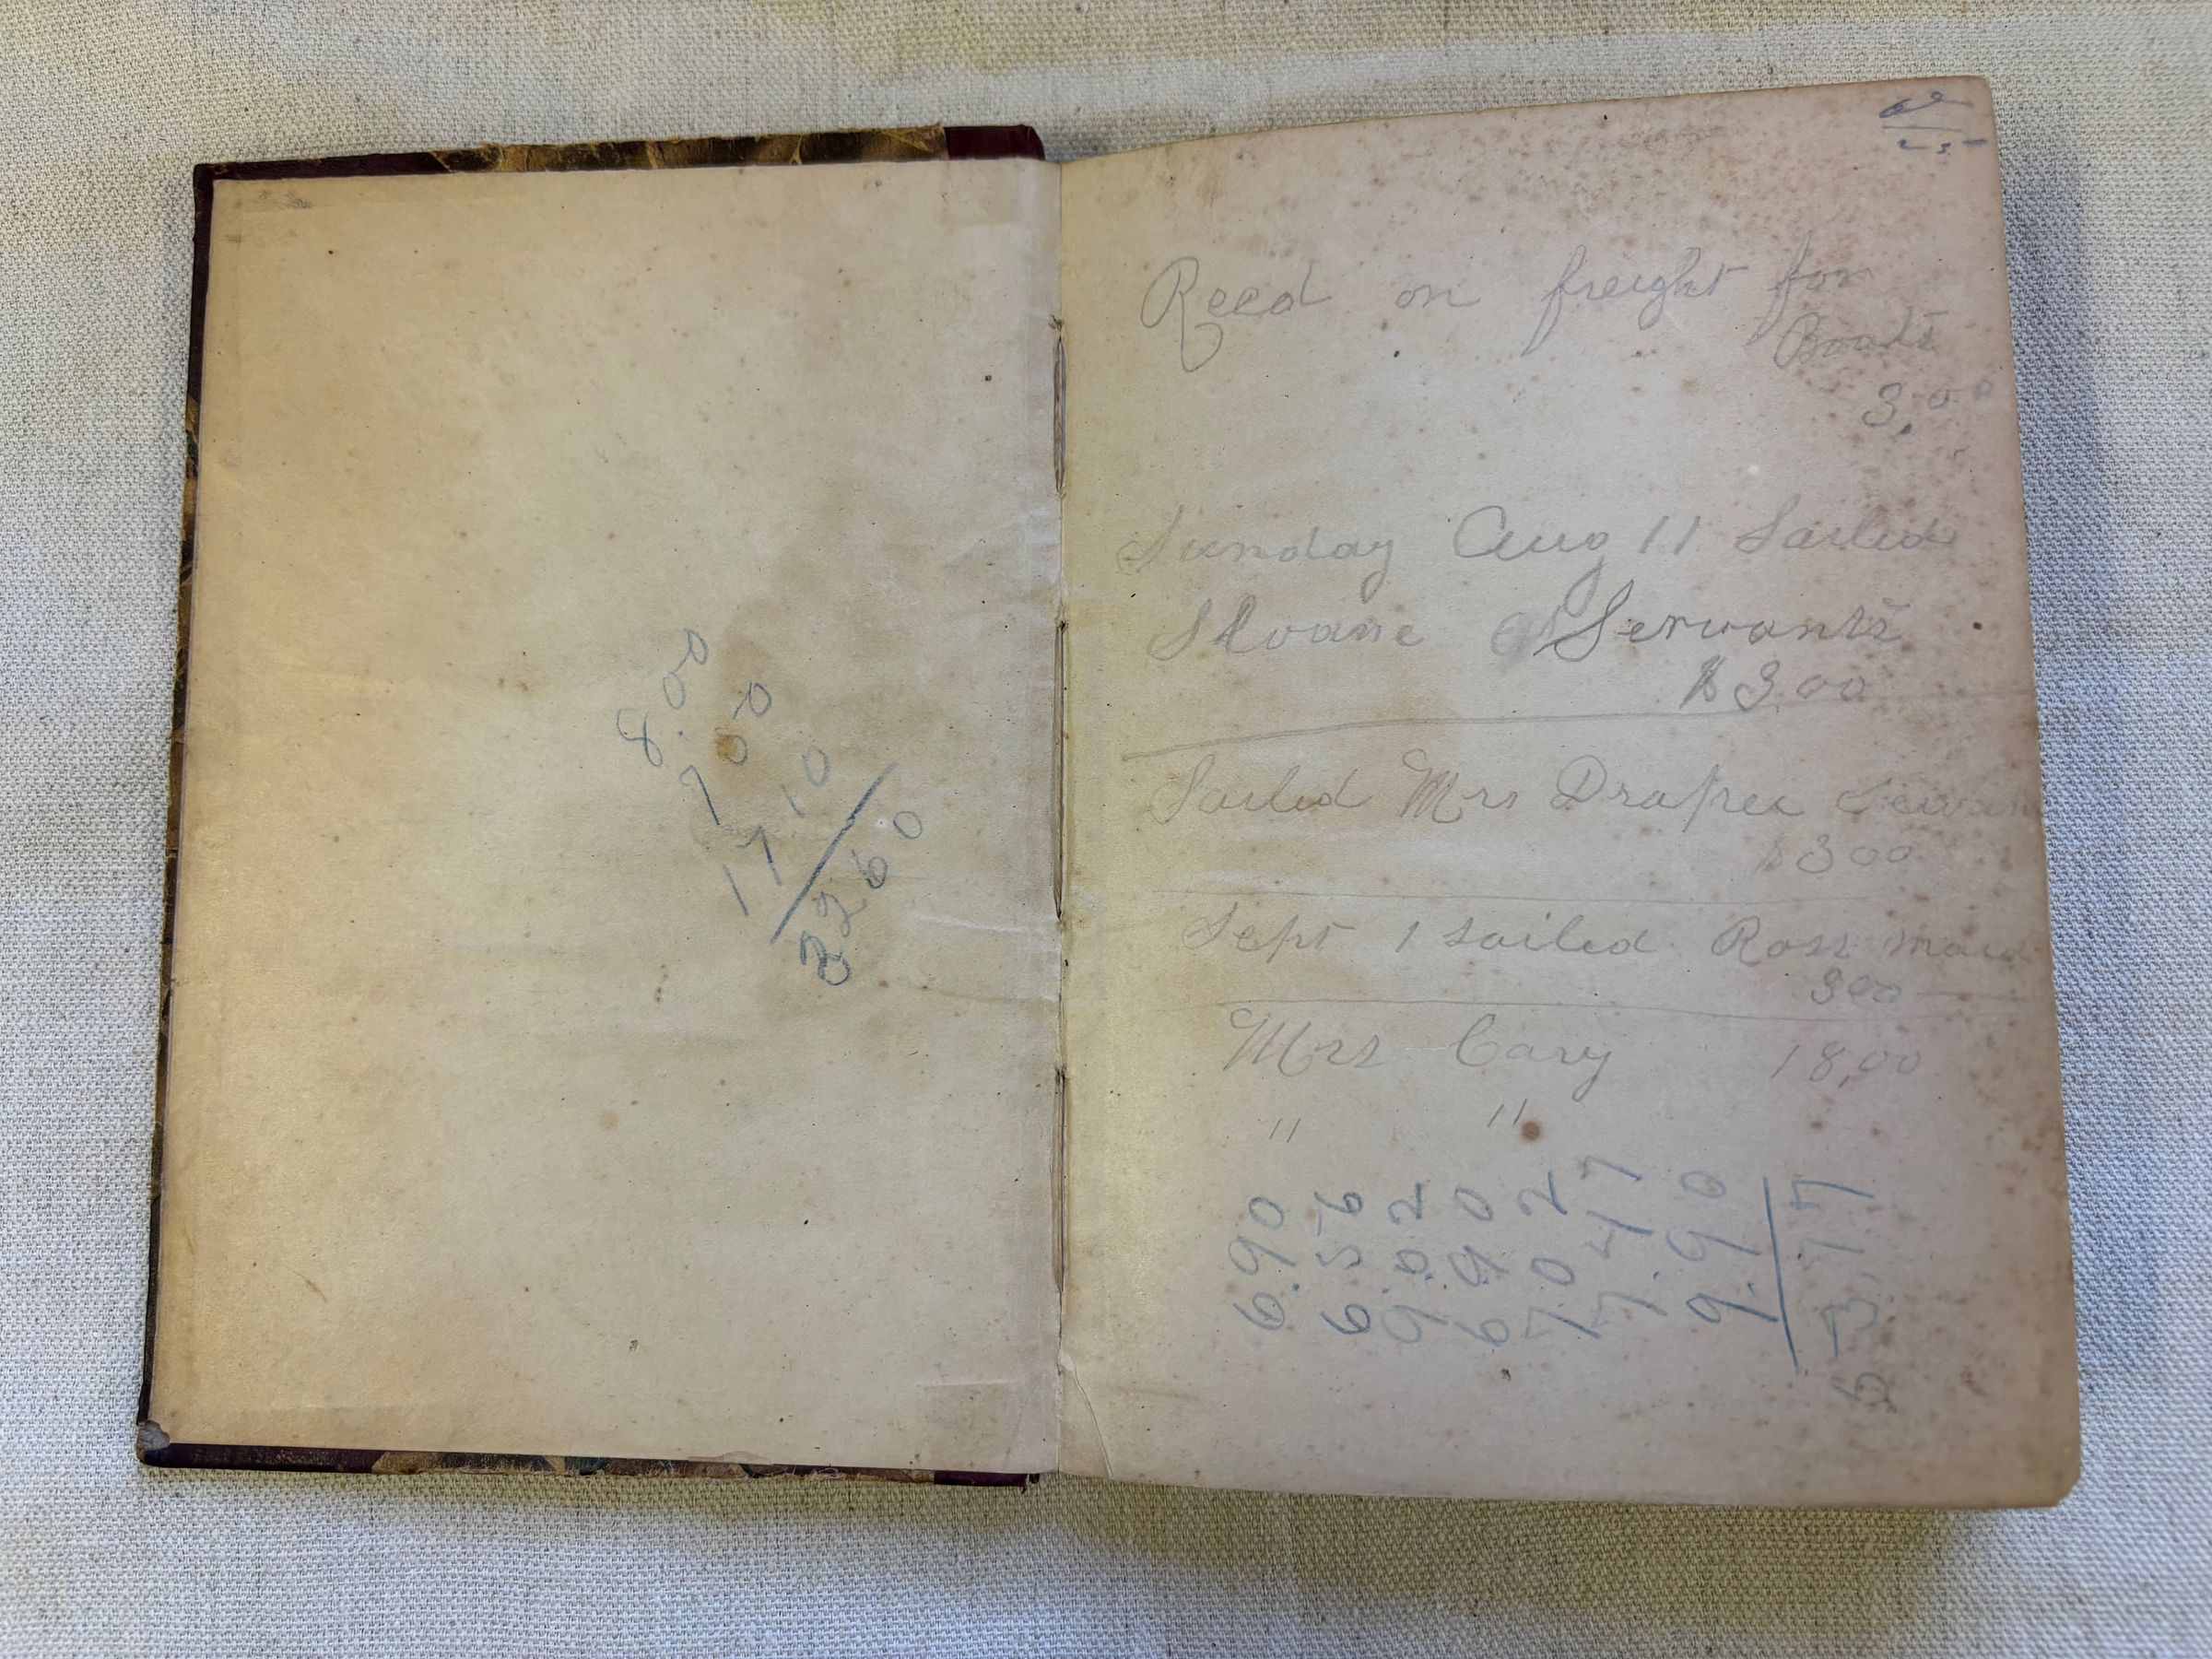 8.00
7 00
17 10
3260
Recd on freight for
Boats
3,00
Sunday Aug 11 Sailed
Sloane Servants
$3.00
Sailed Mrs Draper
$300
Sept 1 sailed Ross Maid
300
Mrs Cary 18,00
" "
6.90
6.56
9.02
6.90
7.02
7.47
9.90
53.77